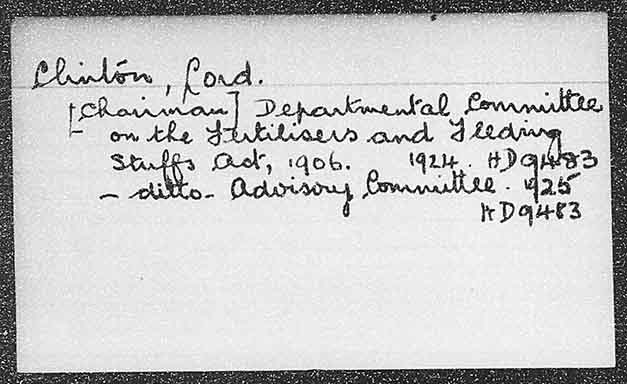 Clinton, Lord.
[Chairman] Departmental Committee
on the Fertilisers and Feeding
Stuffs Act, 1906. 1924. HD9483
- ditto - Advisory Committee. 1925
HD9483